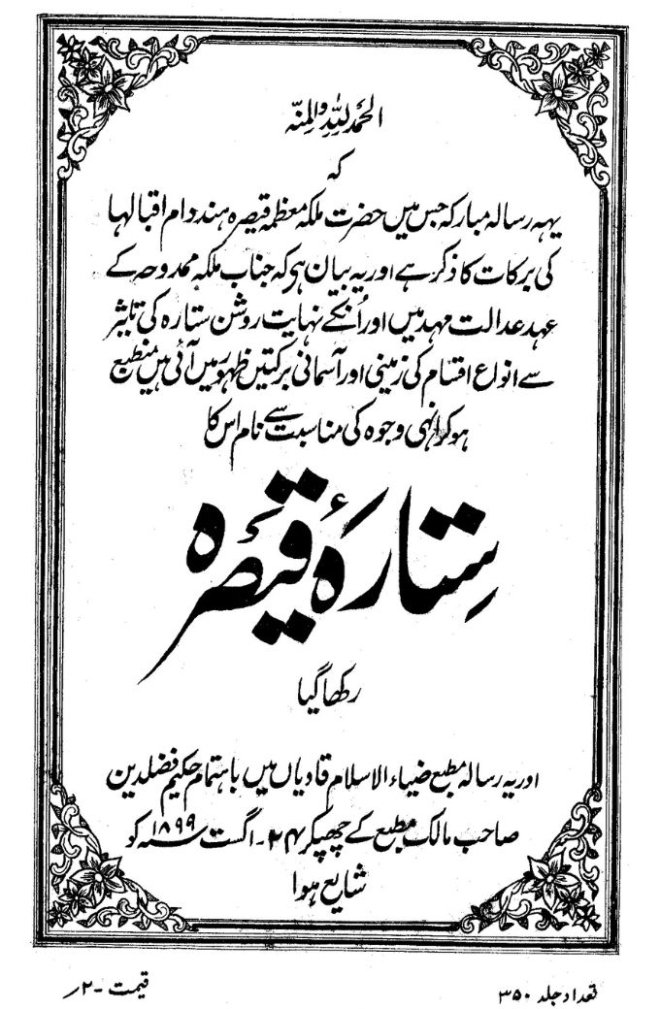 الحمد للہ والمنہ
کہ
یہہ رسالہ مبارکہ جس میں حضرت ملکہ معظمہ قیصرہ ہند دام اقبالہا
کی برکات کا ذکر ہے اور یہ بیان ہی کہ جناب ملکہ ممدوحہ کے
عہد عدالت مہد میں اور اُنکے نہایت روشن ستارہ کی تاثیر
سے انواع اقسام کی زمینی اور آسمانی برکتیں ظہور میں آئی ہیں منطبع
ہو کر انہی وجوہ کی مناسبت سے نام اس کا
ستارۂ قیصرہ
رکھا گیا
اور یہ رسالہ مطبع ضیاء الاسلام قادیاں میں باہتمام حکیم فضلدین
صاحب مالک مطبع کے چھپکر ۲۴۔ اگست ۱۸۹۹ سنہ کو
شایع ہوا
تعداد جلد ۳۵۰
قیمت -۲ر